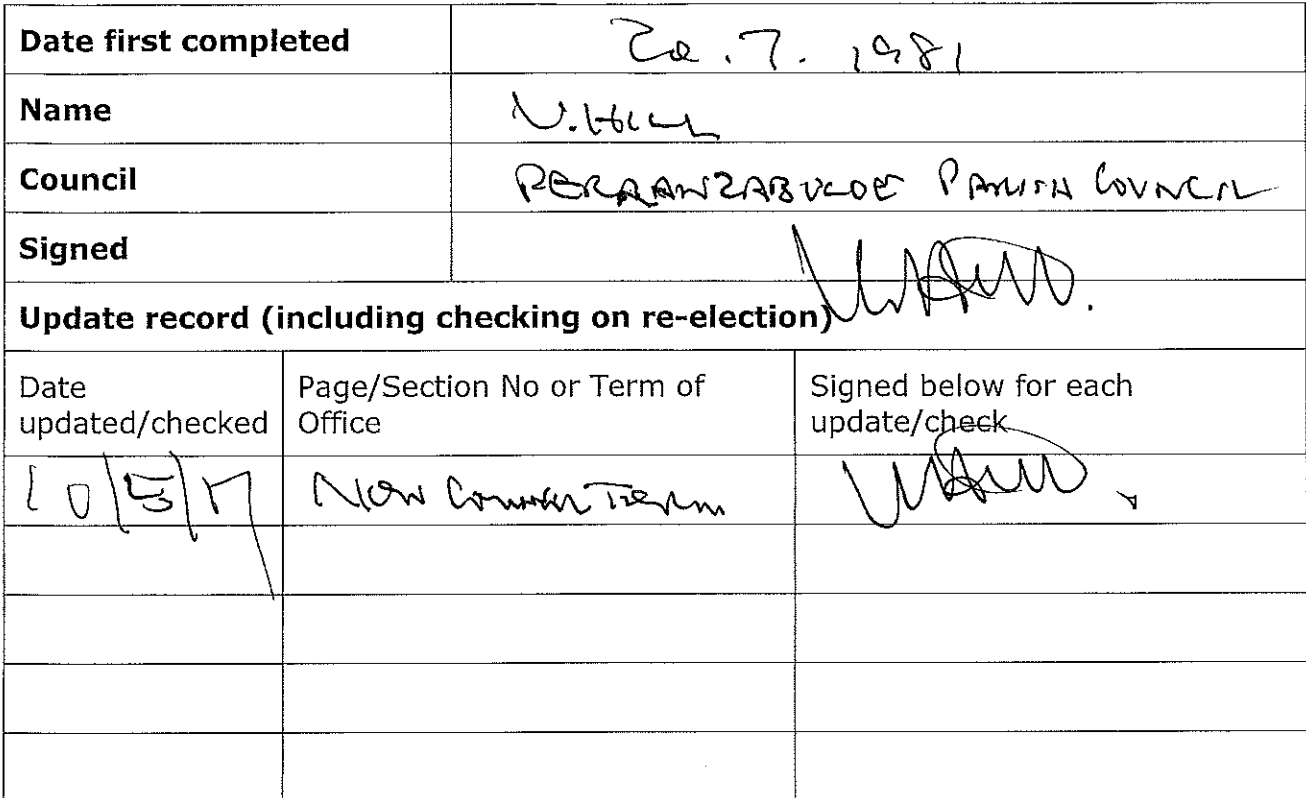 Date first completed 20.7.1981
Name N. HILL
Council PERRANZABULOE PARISH COUNCIL
Signed
Update record (including checking on re-election)
Date updated/checked
Page/Section No or Term of Office
Signed below for each update/check
10/5/17 New Council Term